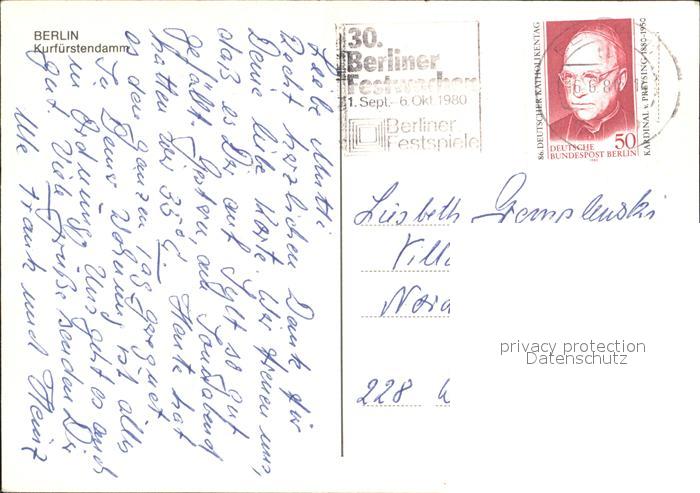 BERLIN
Kurfürstendamm
Liebe Mutti
Recht herzlichen Dank für
Deine liebe Karte. Wir freuen uns,
daß es Dir auf Sylt so gut
gefällt. Gestern, am Sonnabend
hatten wir 35°C. Heute hat
es den ganzen Tag geregnet
In Deiner Wohnung ist alles
in Ordnung. Uns geht es auch
gut. Viele Grüße senden Dir
Ulla Frank und Heinz
30.
Berliner
Festwochen
1. Sept.- 6. Okt. 1980
Berliner
Festspiele
86. DEUTSCHER KATHOLIKENTAG
KARDINAL v. PREYSING 1880-1950
50
DEUTSCHE
BUNDESPOST BERLIN
1980
Liesbeth
Vill
228
privacy protection
Datenschutz